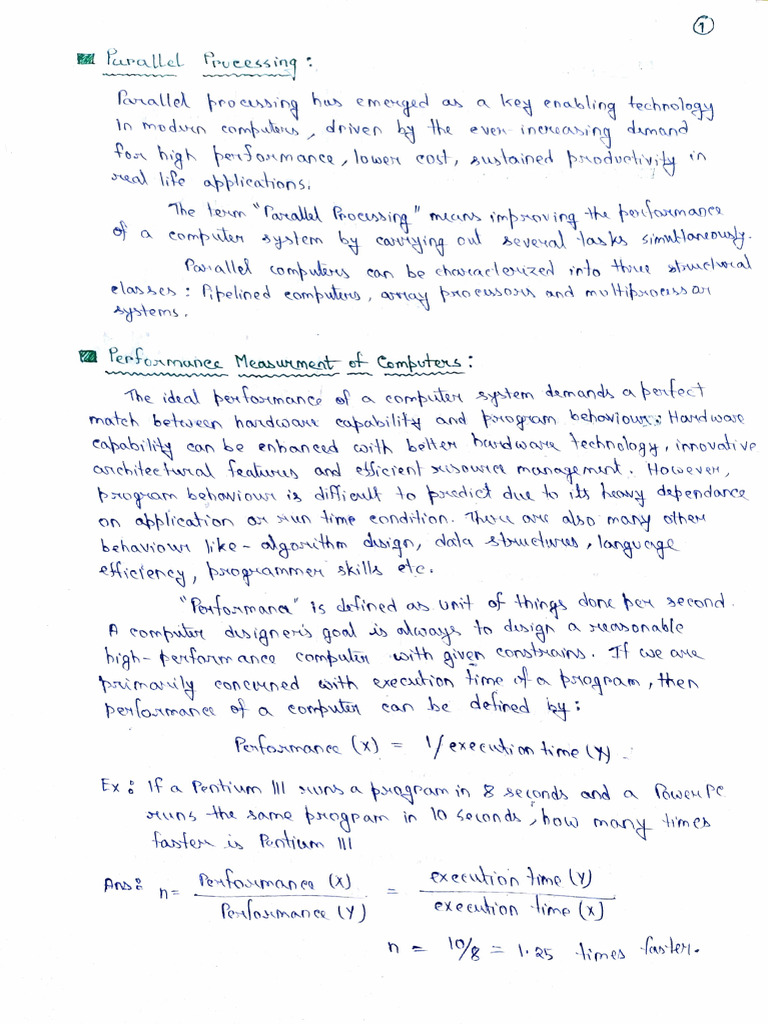 1
Parallel Processing :
Parallel processing has emerged as a key enabling technology
In modern computers, driven by the ever increasing demand
for high performance, lower cost, sustained productivity in
real life applications.
The term "Parallel Processing" means improving the performance
of a computer system by carrying out several tasks simultaneously.
Parallel computers can be characterized into three structural
classes : Pipelined computers, array processors and multiprocessor
systems.
Performance Measurment of Computers :
The ideal performance of a computer system demands a perfect
match between hardware capability and program behaviour. Hardware
capability can be enhanced with better hardware technology, innovative
architectural features and efficient resource management. However,
program behaviour is difficult to predict due to its heavy dependance
on application or run time condition. There are also many other
behaviour like - algorithm design, data structures, language
efficiency, programmer skills etc.
"Performance" is defined as unit of things done per second.
A computer designer's goal is always to design a reasonable
high-performance computer with given constrains. If we are
primarily concerned with execution time of a program, then
performance of a computer can be defined by :
Performance (X) = 1/execution time (X)
Ex : If a Pentium III runs a program in 8 seconds and a PowerPC
runs the same program in 10 seconds, how many times
faster is Pentium III
Ans : n = Performance (X) / Performance (Y) = execution time (Y) / execution time (X)
n = 10/8 = 1.25 times faster.